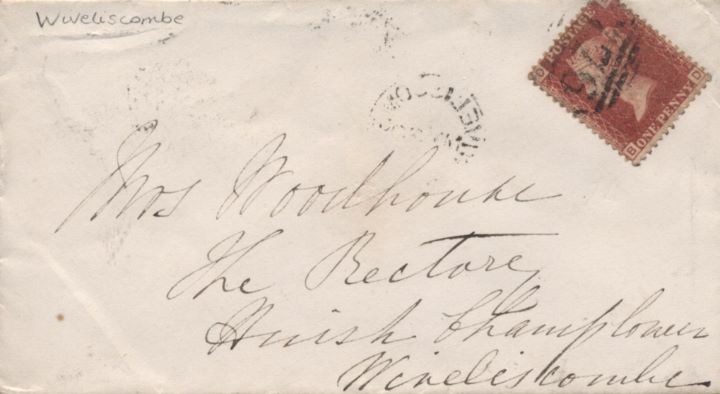 Wiveliscombe
POSTAGE
ONE PENNY
Mrs Woodhouse
The Rectory
Huish Champflower
Wiveliscombe